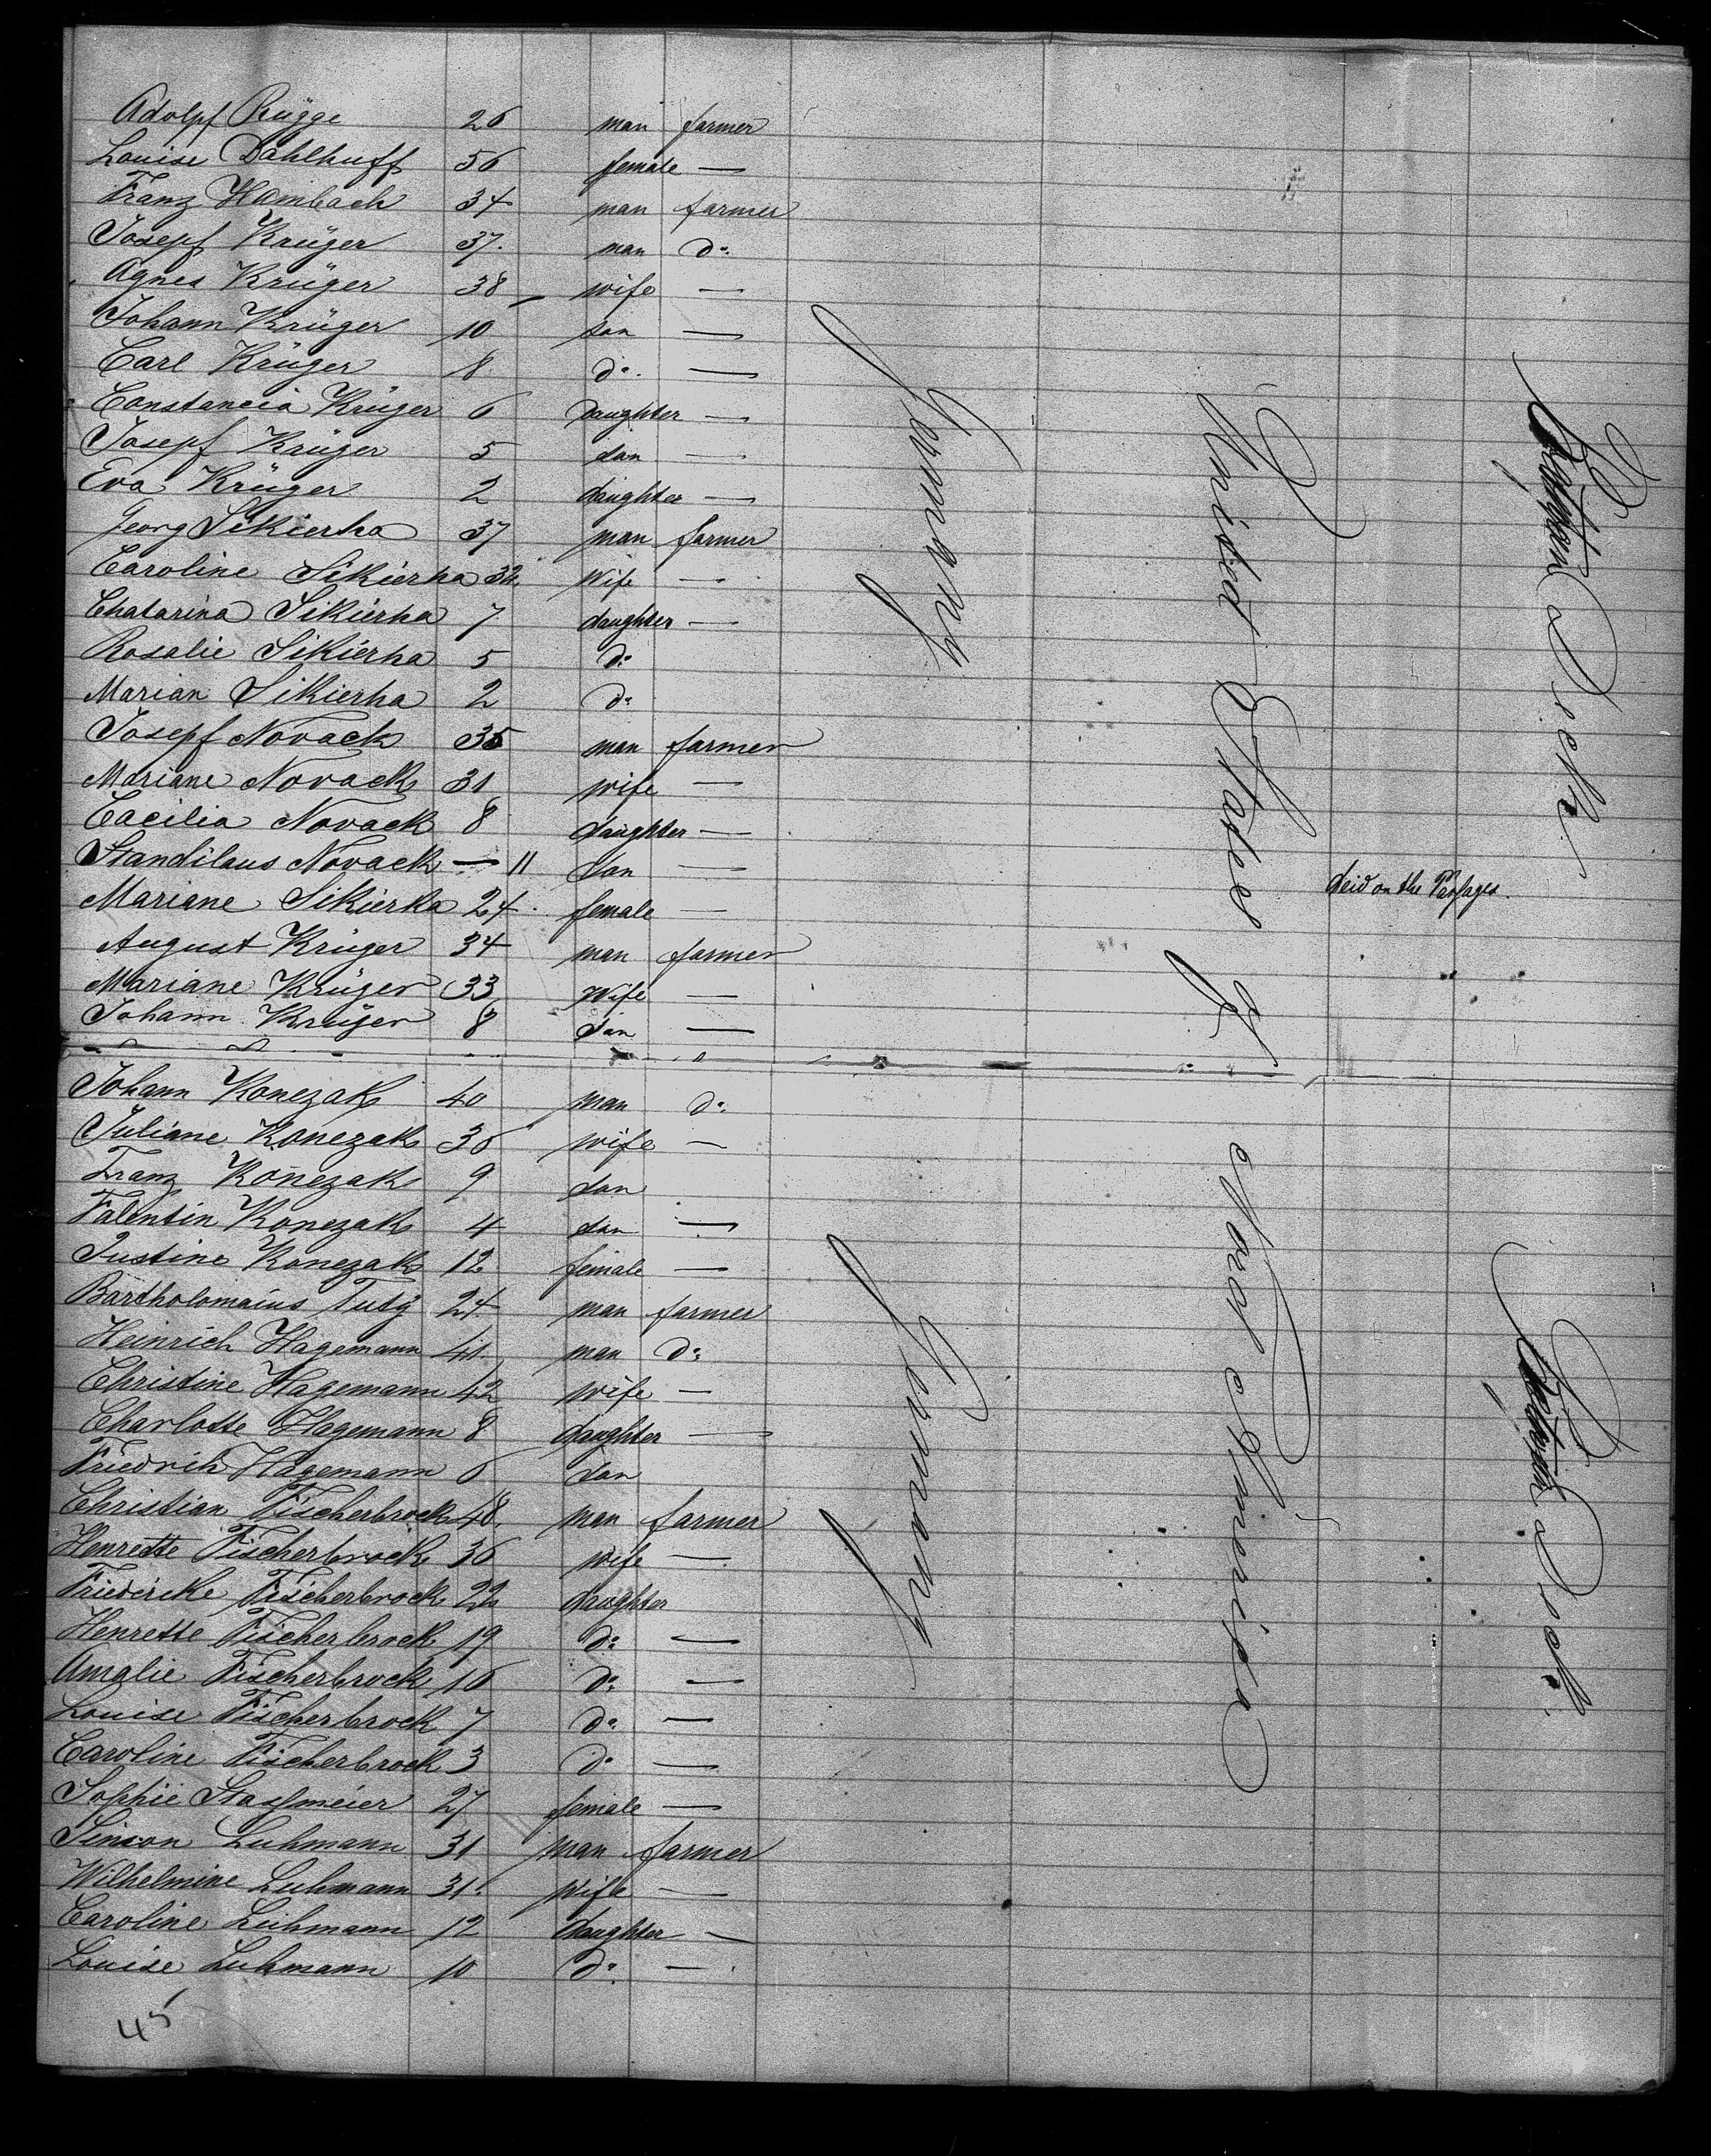 Adolpf Rügge 26 man farmer
Louise Dahlhuff 56 female —
Franz Hambach 34 man farmer
Josepf Krüger 37. man do.
Agnes Krüger 38 wife —
Johann Krüger 10 son —
Carl Krüger 8 do. —
Constancia Krüger 6 daughter —
Josepf Krüger 5 son —
Eva Krüger 2 daughter —
Georg Sikierka 37 man farmer
Caroline Sikierka 32 wife —
Chatarina Sikierka 7 daughter —
Rosalie Sikierka 5 do
Marian Sikierka 2 do
Josepf Novack 35 man farmer
Mariane Novack 31 wife —
Cacilia Novack 8 daughter —
Standilaus Novack — 11 son — deid on the Passages.
Mariane Sikierka 24. female —
August Krüger 34 man farmer
Mariane Krüger 33 wife —
Johann Krüger 8 son —
Germany
United States of
Johann Konezak 40 man do.
Juliane Konezak 36 wife —
Franz Konezak 9 son
Falentin Konezak 4 son —
Justine Konezak 12 female —
Bartholomaius 24 man farmer
Heinrich Hagemann 41 man do
Christine Hagemann 42 wife —
Charlotte Hagemann 8 daughter —
Friedrich Hagemann 6 son
Christian Fischerbrock 48. man farmer
Henrette Fischerbrock 36 wife —
Friedricke Fischerbrock 22 daughter
Henrette Fischerbrock 19 do —
Amalie Fischerbrock 16 do —
Louise Fischerbrock 7 do —
Caroline Fischerbrock 3 do —
Sophie Stassmeier 27 female —
Simon Luhmann 31 man farmer
Wilhelmine Luhmann 31. wife —
Caroline Luhmann 12 daughter —
Louise Luhmann 10 do. —
Germany
Nord America
45